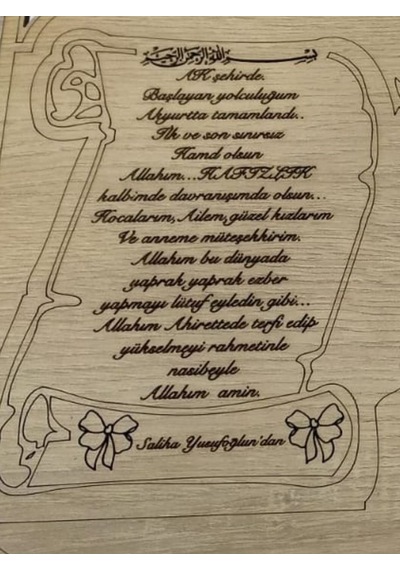 بسم الله الرحمن الرحيم
AKşehirde.
Başlayan yolculuğum
Akyurtta tamamlandı..
İlk ve son sınırsız
Hamd olsun
Allahım...HAFIZLIK
kalbimde davranışımda olsun...
Hocalarım, Ailem, güzel kızlarım
Ve anneme müteşehkirim.
Allahım bu dünyada
yaprak yaprak ezber
yapmayı lütuf eyledin gibi...
Allahım Ahirettede terfi edip
yükselmeyi rahmetinle
nasibeyle
Allahım amin.
Saliha Yusufoğlun'dan